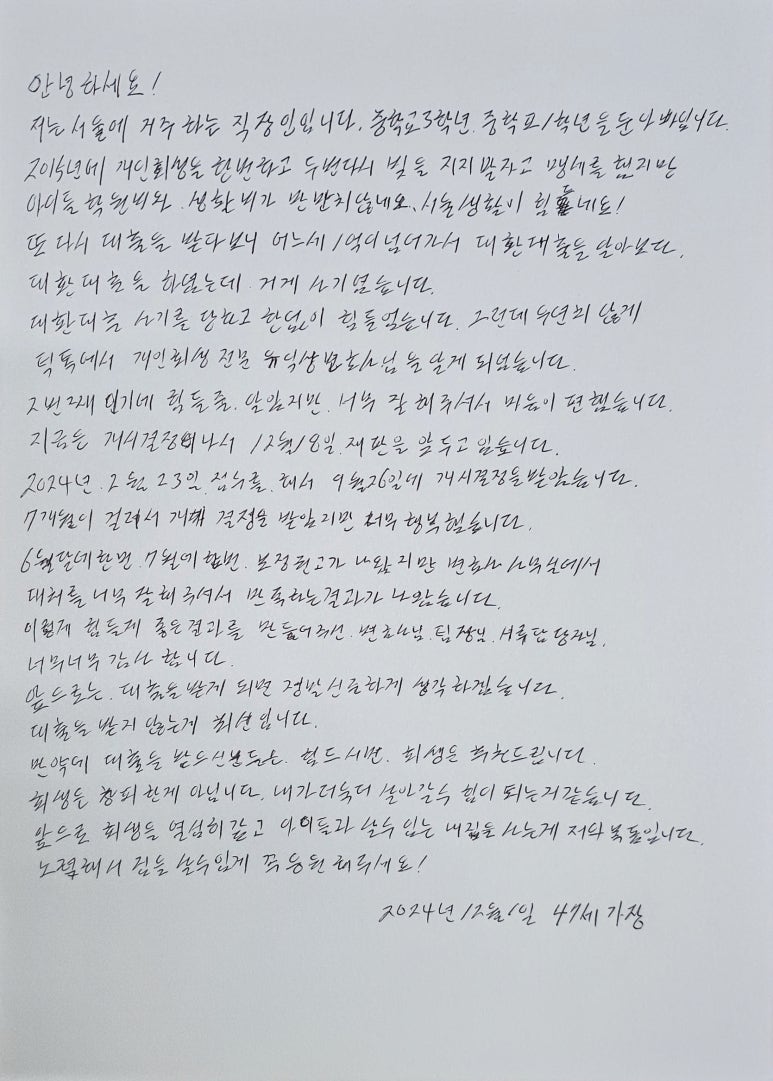 안녕하세요!
저는 서울에 거주 하는 직장인입니다. 중학교3학년. 중학교1학년을 둔 아빠입니다.
2015년에 개인회생을 한번하고 두번다시 빚을 지지말자고 맹세를 했지만
아이들 학원비와. 생활비가 만만치않네요. 서울생활이 힘드네요!
또 다시 대출을 받다보니 어느세 1억이넘어가서 대환대출을 알아보다.
대환대출을 하였는데. 거게 사기였습니다.
대환대출 사기를 당하고 한없이 힘들었습니다. 그런데 우연치 않게
틱톡에서 개인회생 전문 유익상변호사님을 알게 되었습니다.
2번째 인기에 힘들줄. 알았지만. 너무 잘 해주셔서 마음이 편했습니다.
지금은 개시결정이나서 12월18일. 재판을 앞두고 있습니다.
2024년. 2월 23일. 접수를. 해서 9월26일에 개시결정을받았습니다.
7개월이 걸려서 개시 결정을 받았지만 너무 행복했습니다.
6월달에한번. 7월에한번. 보정권고가 나왔지만 변호사 사무실에서
대처를 너무 잘해주셔서 만족하는결과가 나왔습니다.
이렇게 힘들게 좋은결과를 만들어주신. 변호사님. 팀장님. 서류담당자님.
너무너무 감사 합니다.
앞으로는. 대출을받게 되면 정말신중하게 생각하겠습니다.
대출을 받지 않는게 최선입니다.
만약에 대출을 받으신분들은. 힘드시면. 회생을 추천드립니다.
회생은 창피한게 아닙니다. 내가더욱더 살아갈수 힘이 되는거같습니다.
앞으로 회생을 열심히갚고 아이들과 살수 있는 내집을 사는게 저와 목표입니다.
노력해서 집을 살수있게 꼭 응원 해주세요!
2024년 12월1일 47세 가장